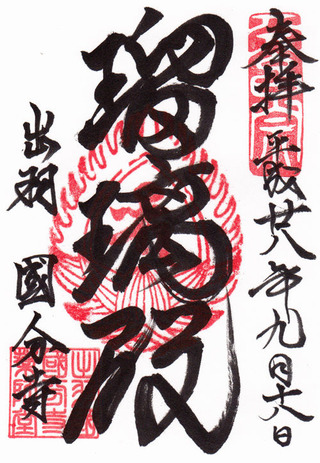 奉拝 平成廿八年九月十六日
瑠璃殿
出羽 國分寺